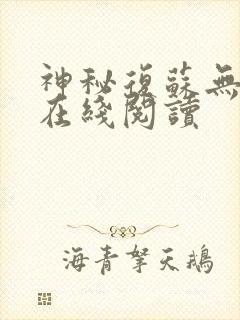 神秘復蘇無
在綫閱讀
海青拏天鵝